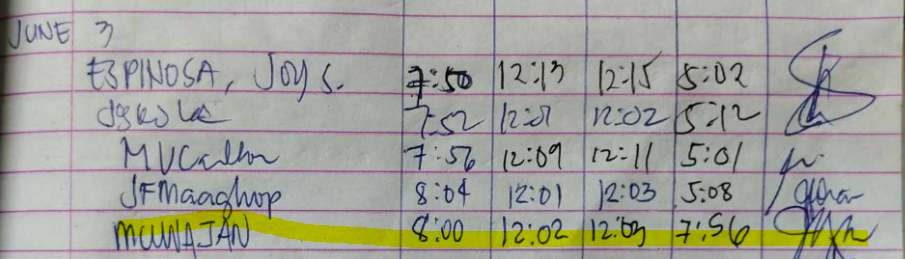 JUNE 3
ESPINOSA, JOY S. 7:50 12:13 12:15 5:02
7:52 12:01 12:02 5:12
7:56 12:09 12:11 5:01
JFMaaghop 8:04 12:01 12:03 5:08
8:00 12:02 12:03 7:56